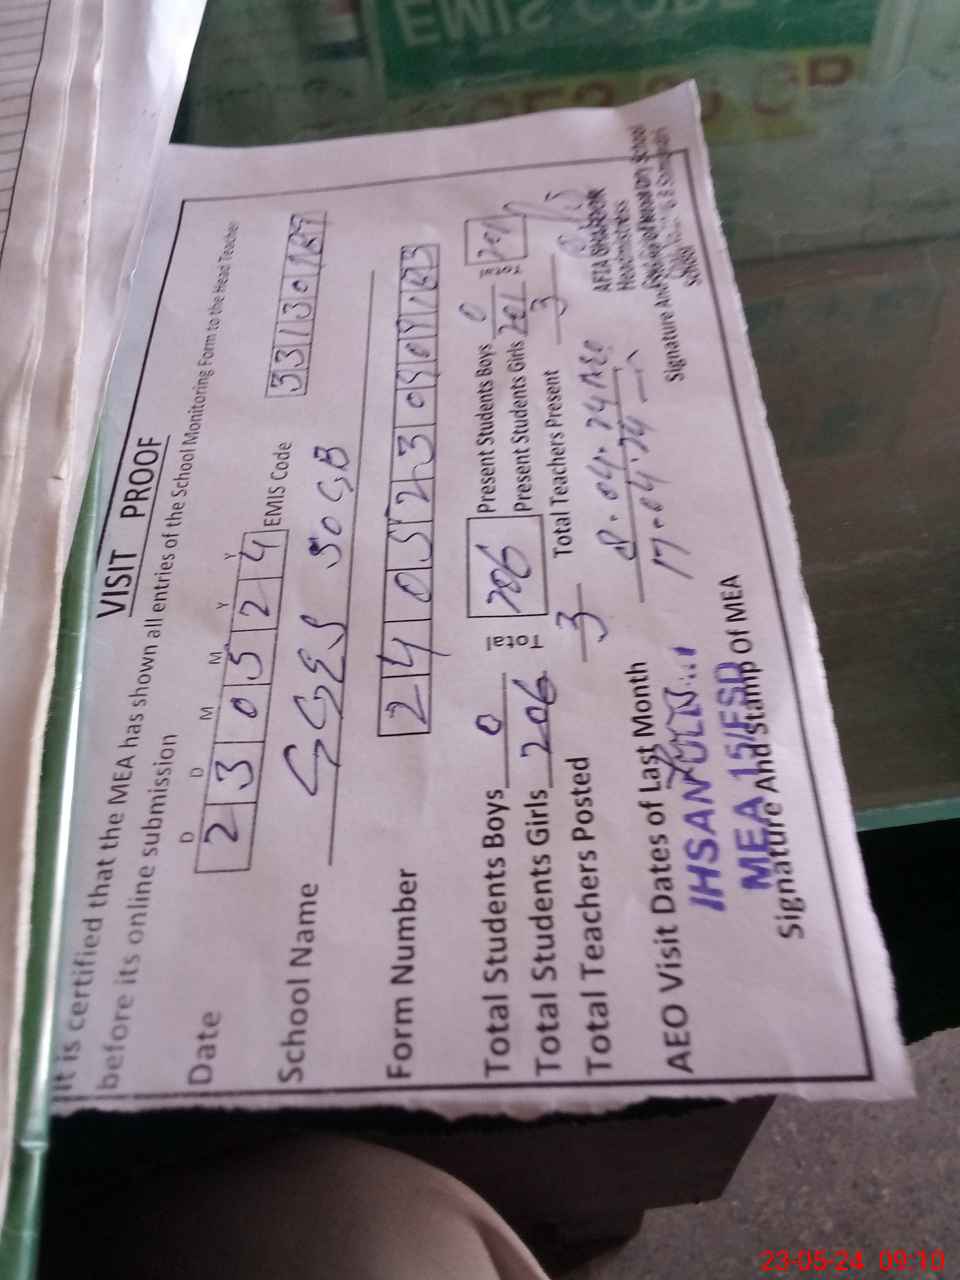 EMIS CODE
VISIT PROOF
It is certified that the MEA has shown all entries of the School Monitoring Form to the Head Teacher
before its online submission
D D M M Y Y
Date 2 3 0 5 2 4 EMIS Code 3 3 1 3 0 1 8 7
School Name GGES 50 GB
Form Number 2 4 0 5 2 3 0 9 0 9 1 8 3
Total Students Boys 0 Total 206 Present Students Boys 0
Total Students Girls 206 Present Students Girls 201 201
Total Teachers Posted 3 Total Teachers Present 3
AEO Visit Dates of Last Month 8.04.24 AEO
17.04.24
IHSAN
MEA 15/FSD
Signature And Stamp Of MEA
AFIA
Headmistress
School
Signature And
School
23-05-24 09:10